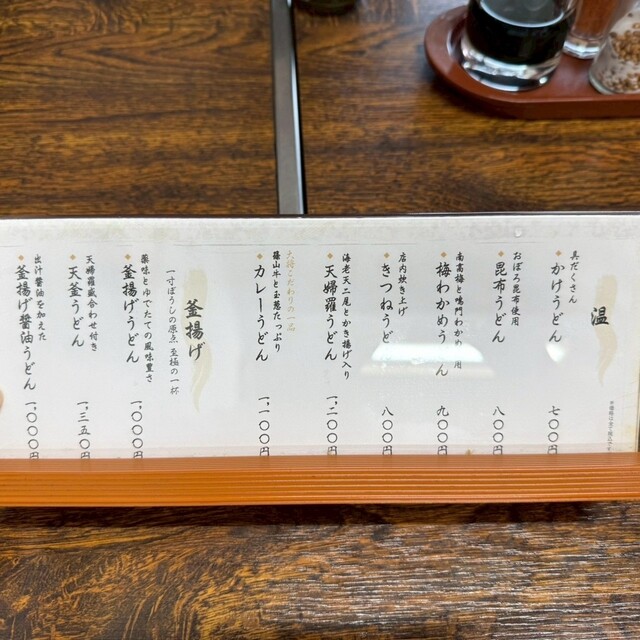 温
具だくさん
かけうどん
七〇〇円
おぼろ昆布使用
昆布うどん
八〇〇円
南高梅と鳴門わかめ使用
梅わかめうどん
九〇〇円
店内炊き上げ
きつねうどん
八〇〇円
海老天二尾とかき揚げ入り
天婦羅うどん
一、二〇〇円
大将こだわりの一品
篠山牛と玉葱たっぷり
カレーうどん
一、一〇〇円
釜揚げ
一寸ぼうしの原点 至極の一杯
薬味とゆでたての風味豊さ
釜揚げうどん
一、〇〇〇円
天婦羅盛合わせ付き
天釜うどん
一、三五〇円
出汁醤油を加えた
釜揚げ醤油うどん
一、〇〇〇円